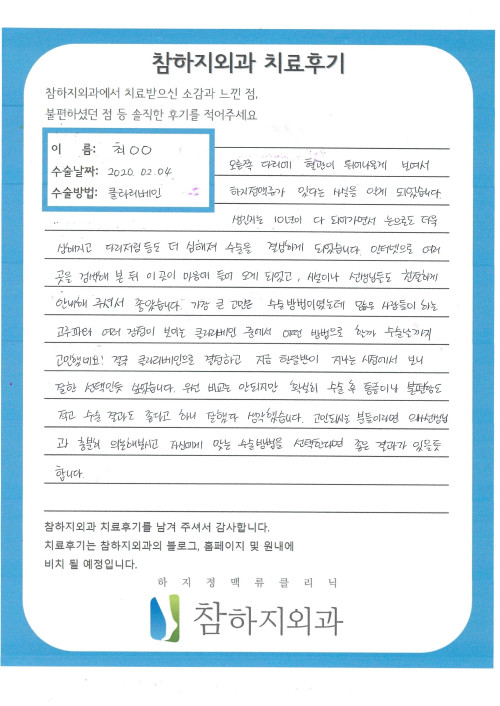 참하지외과 치료후기
참하지외과에서 치료받으신 소감과 느낀 점,
불편하셨던 점 등 솔직한 후기를 적어주세요
이 름: 최○○
수술날짜: 2020. 02. 04
수술방법: 클라리베인
오른쪽 다리에 혈관이 튀어나오게 보여서
하지정맥류가 있다는 사실을 알게 되었습니다.
생긴지는 10년이 다 되어가면서 눈으로도 더욱
심해지고 다리저림등도 더 심해져 수술을 결심하게 되었습니다. 인터넷으로 여러
곳을 검색해 본 뒤 이곳이 마음에 들어 오게 되었고, 시설이나 선생님들도 친절하게
안내해 주셔서 좋았습니다. 가장 큰 고민은 수술방법이였는데 많은 사람들이 하는
고주파와 여러 장점이 보이는 클라리베인 중에서 어떤 방법으로 할까 수술날까지
고민했네요! 결국 클라리베인으로 결정하고 지금 한달반이 지나는 시점에서 보니
잘한 선택인듯 싶습니다. 우선 비교는 안되지만 확실히 수술 후 통증이나 불편함도
적고 수술 결과도 좋다고 하니 잘했다 생각했습니다. 고민되시는 분들이라면 의사선생님
과 충분히 의논해보시고 자신에게 맞는 수술방법을 선택한다면 좋은 결과가 있을듯
합니다.
참하지외과 치료후기를 남겨 주셔서 감사합니다.
치료후기는 참하지외과의 블로그, 홈페이지 및 원내에
비치 될 예정입니다.
하지정맥류클리닉
참하지외과